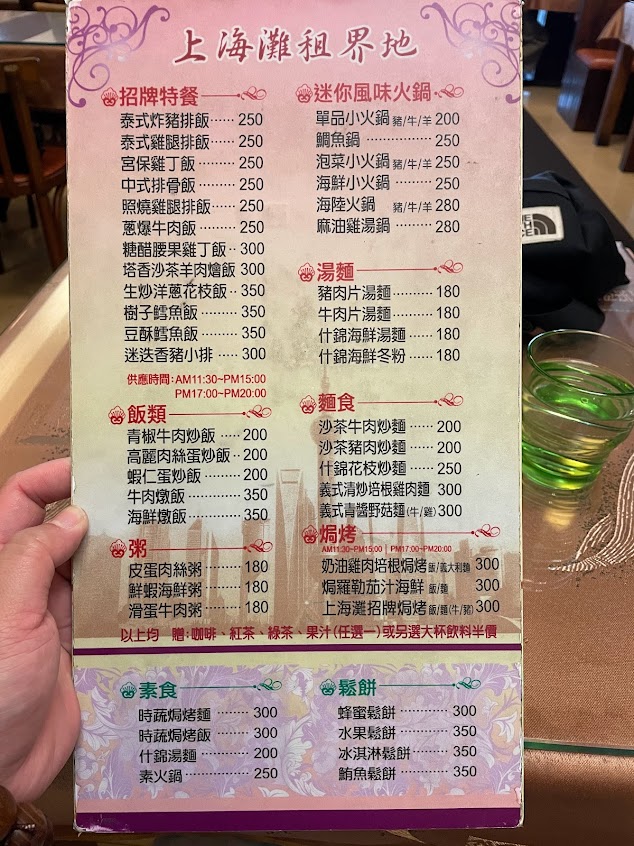 上海灘租界地
招牌特餐
泰式炸豬排飯⋯⋯250
泰式雞腿排飯⋯⋯250
宮保雞丁飯⋯⋯⋯250
中式排骨飯⋯⋯⋯250
照燒雞腿排飯⋯⋯250
蔥爆牛肉飯⋯⋯⋯250
糖醋腰果雞丁飯‥300
塔香沙茶羊肉燴飯 300
生炒洋蔥花枝飯‥350
樹子鱈魚飯⋯⋯⋯350
豆酥鱈魚飯⋯⋯⋯350
迷迭香豬小排⋯⋯300
供應時間:AM11:30~PM15:00
PM17:00~PM20:00
飯類
青椒牛肉炒飯⋯⋯200
高麗肉絲蛋炒飯‥200
蝦仁蛋炒飯⋯⋯⋯200
牛肉燉飯⋯⋯⋯⋯350
海鮮燉飯⋯⋯⋯⋯350
粥
皮蛋肉絲粥⋯⋯⋯180
鮮蝦海鮮粥⋯⋯⋯180
滑蛋牛肉粥⋯⋯⋯180
迷你風味火鍋
單品小火鍋 豬/牛/羊 200
鯛魚鍋⋯⋯⋯⋯⋯250
泡菜小火鍋 豬/牛/羊 250
海鮮小火鍋⋯⋯⋯250
海陸火鍋 豬/牛/羊 280
麻油雞湯鍋⋯⋯⋯280
湯麵
豬肉片湯麵⋯⋯⋯180
牛肉片湯麵⋯⋯⋯180
什錦海鮮湯麵⋯⋯180
什錦海鮮冬粉⋯⋯180
麵食
沙茶牛肉炒麵⋯⋯200
沙茶豬肉炒麵⋯⋯200
什錦花枝炒麵⋯⋯250
義式清炒培根雞肉麵 300
義式青醬野菇麵(牛/雞) 300
焗烤
AM11:30~PM15:00 | PM17:00~PM20:00
奶油雞肉培根焗烤 飯/義大利麵 300
焗羅勒茄汁海鮮 飯/麵 300
上海灘招牌焗烤 飯/麵(牛/豬) 300
以上均 贈:咖啡、紅茶、綠茶、果汁(任選一)或另選大杯飲料半價
素食
時蔬焗烤麵⋯⋯⋯300
時蔬焗烤飯⋯⋯⋯300
什錦湯麵⋯⋯⋯⋯200
素火鍋⋯⋯⋯⋯⋯250
鬆餅
蜂蜜鬆餅⋯⋯⋯⋯300
水果鬆餅⋯⋯⋯⋯350
冰淇淋鬆餅⋯⋯⋯350
鮪魚鬆餅⋯⋯⋯⋯350